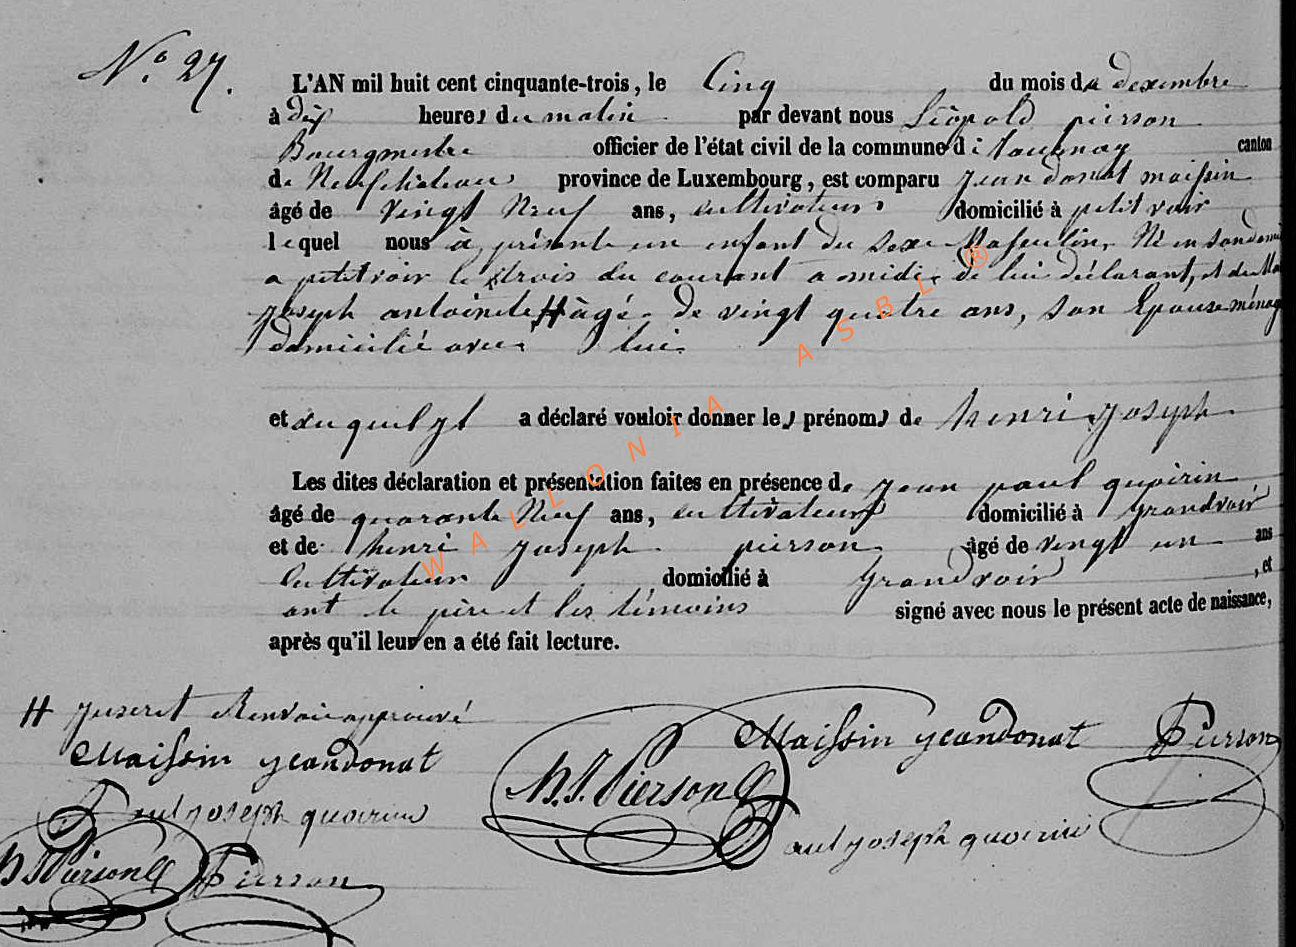 N.° 27.
L'AN mil huit cent cinquante-trois, le Cinq du mois de dexembre
à dix heures du matin par devant nous Léopold pierson
Bourgmestre officier de l'état civil de la commune de tournay canton
de Neufchateau province de Luxembourg, est comparu jean donat maissin
âgé de vingt Neuf ans, cultivateur domicilié à petit voir
lequel nous à présenté un enfant du sexe Masculin, Né en son domi
a petitvoir le trois du courant a midi, de lui déclarant, et de Ma
joseph antoinete H àgée de vingt quatre ans, son Epouse ménag
domicilié avec lui
et auquel yl a déclaré vouloir donner les prénoms de henri joseph
Les dites déclaration et présentation faites en présence de jean paul quoirin
âgé de quarante Neuf ans, cultivateur domicilié à grandvoir
et de henri joseph pierson âgé de vingt un ans
cultivateur domicilié à grandvoir, et
ont le père et les témoins signé avec nous le présent acte de naissance,
après qu'il leur en a été fait lecture.
H juseret Renvoi approuvé
Maissin jeandonat
Paul joseph quoirin
H J Pierson
Pierson
H. J. Pierson
Maissin jeandonat
Pierson
Paul joseph quoirin
WALLONIA ASBL ®